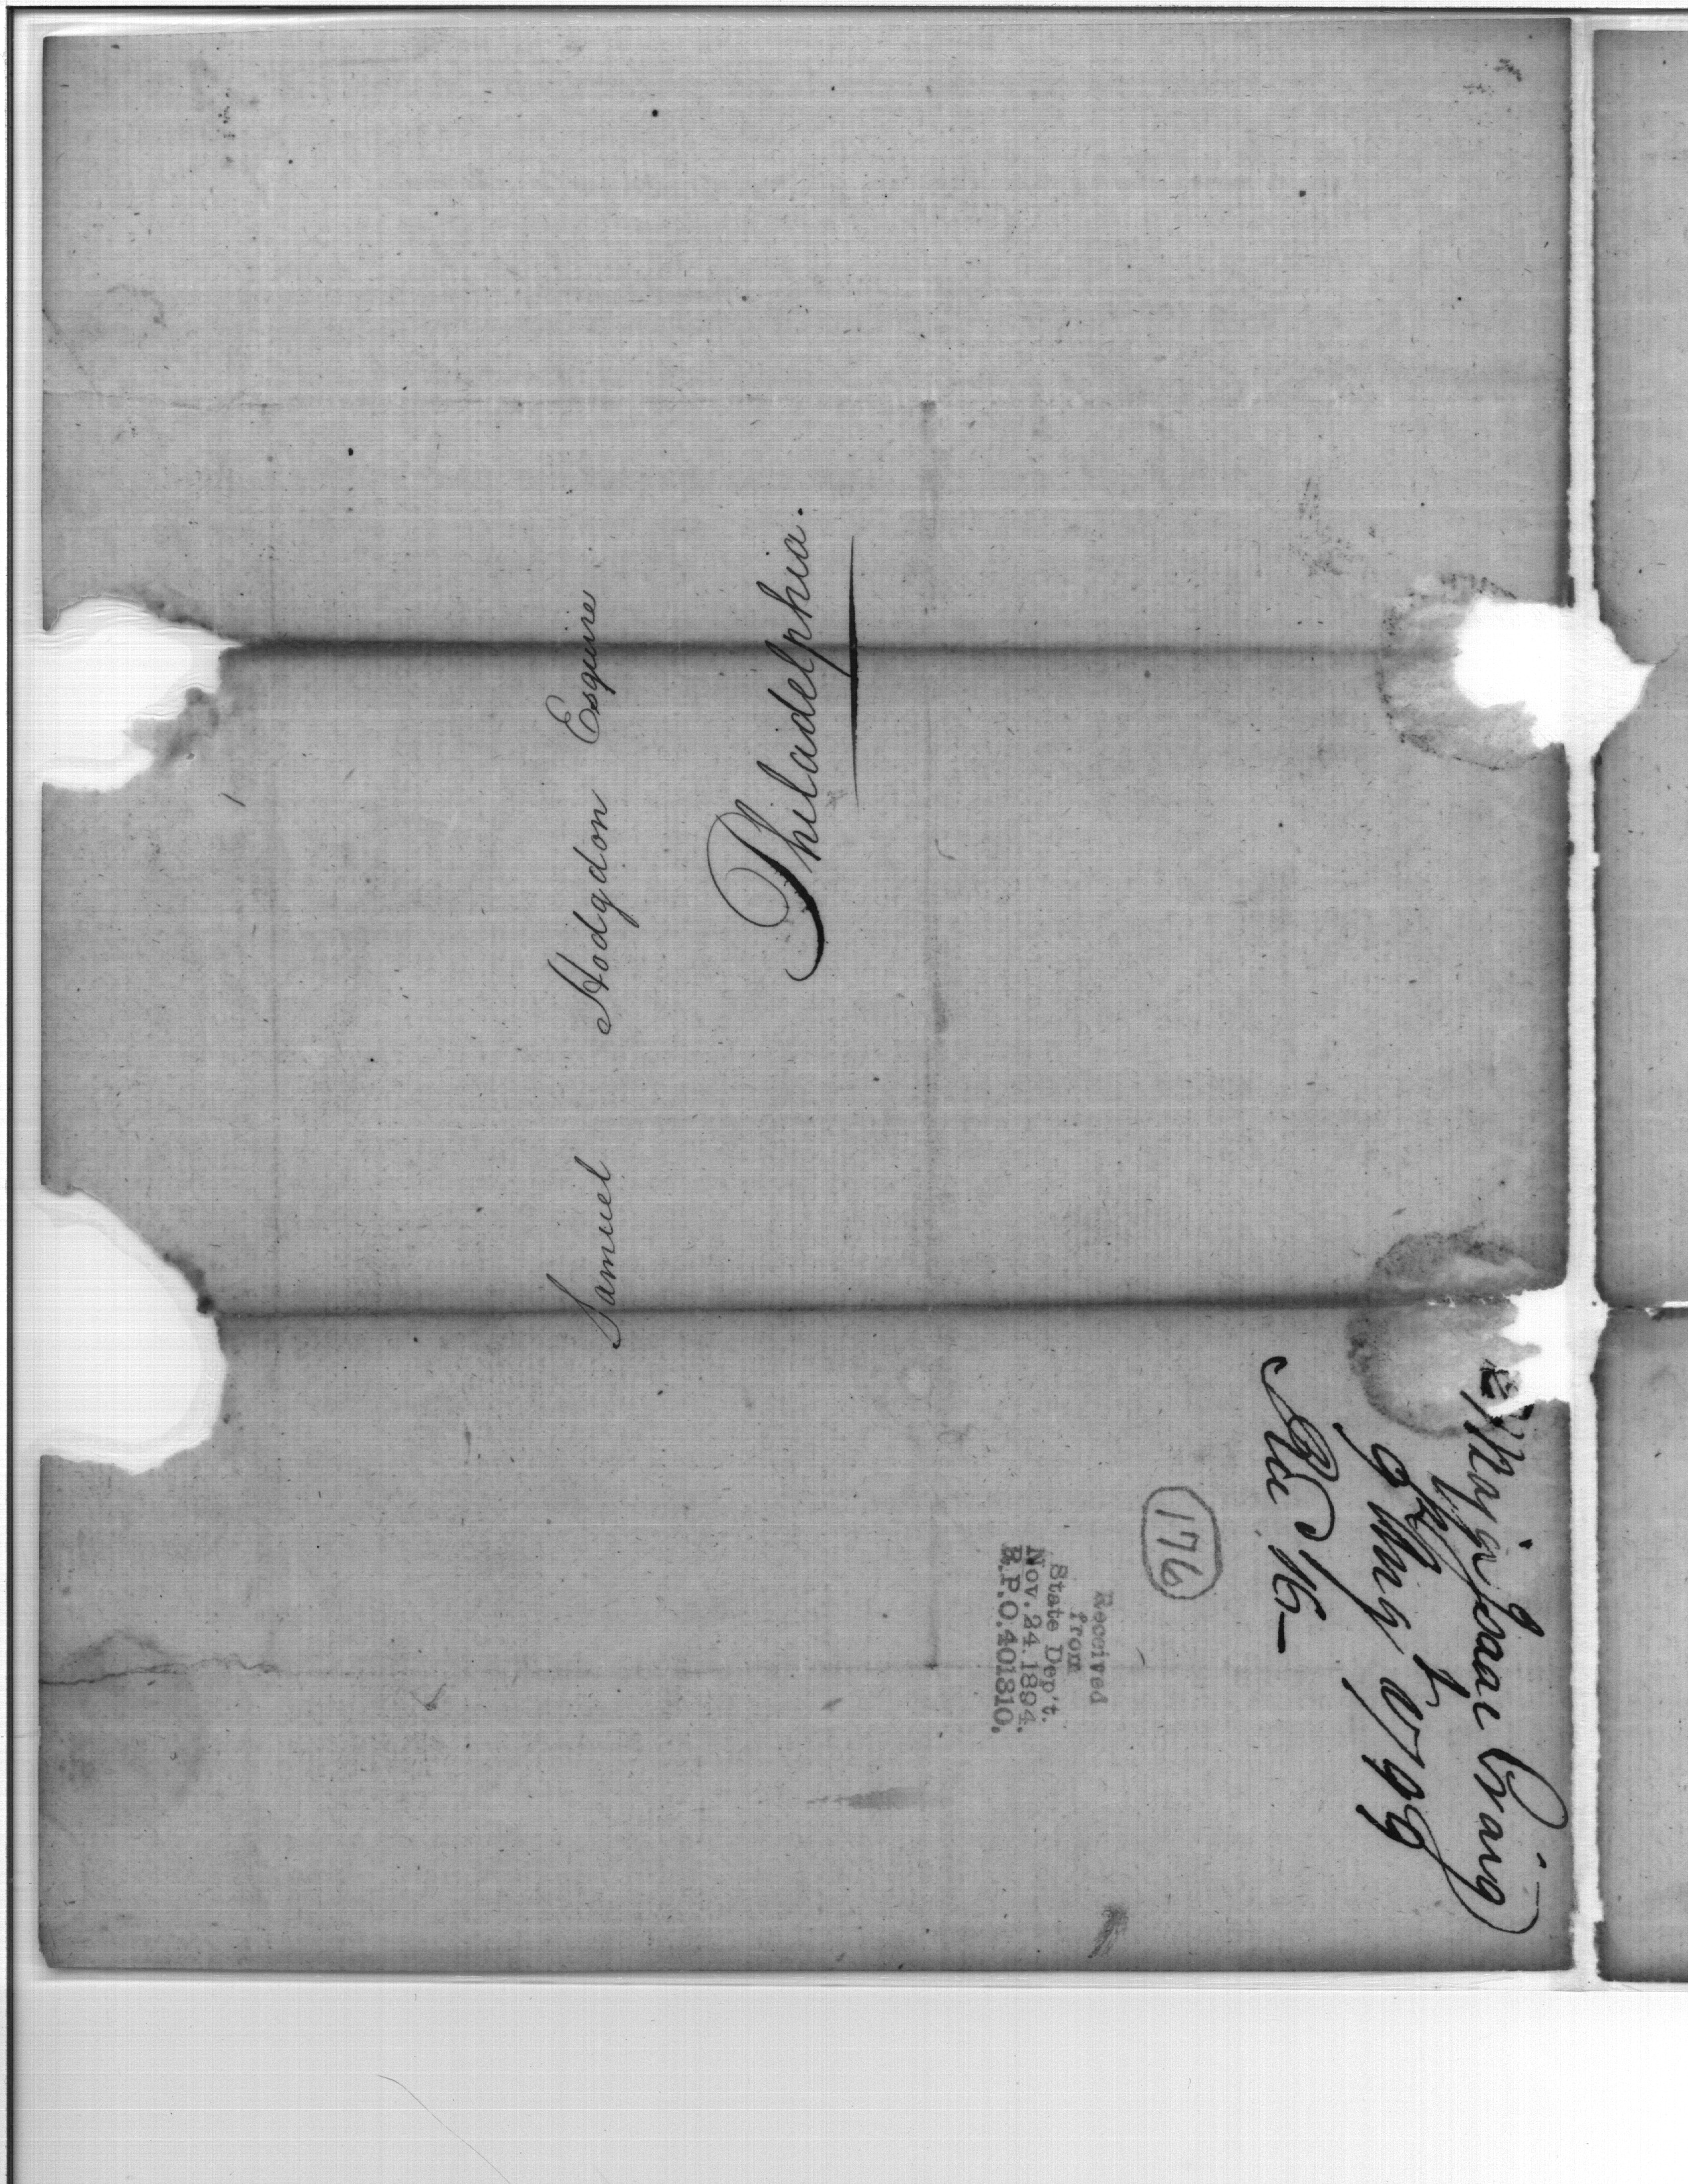 Samuel Hodgdon Esquire
Philadelphia.
Major Isaac Craig
9th Augt 1799
Received
from
State Dep't.
Nov. 24. 1894.
R.P.O. 401310.
176